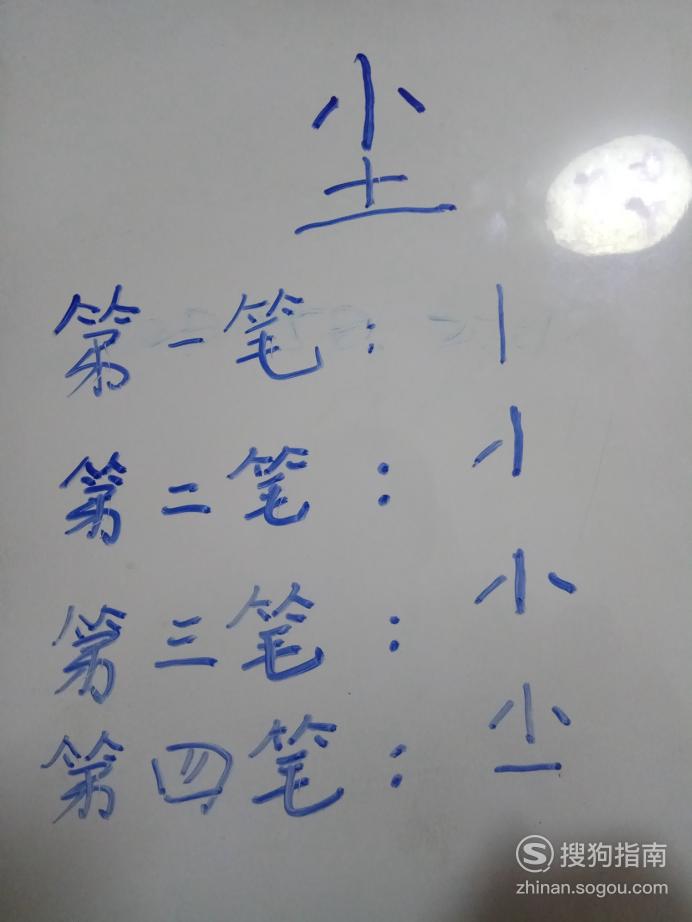 尘
第一笔：丨
第二笔：
第三笔：小
第四笔：
搜狗指南
zhinan.sogou.com